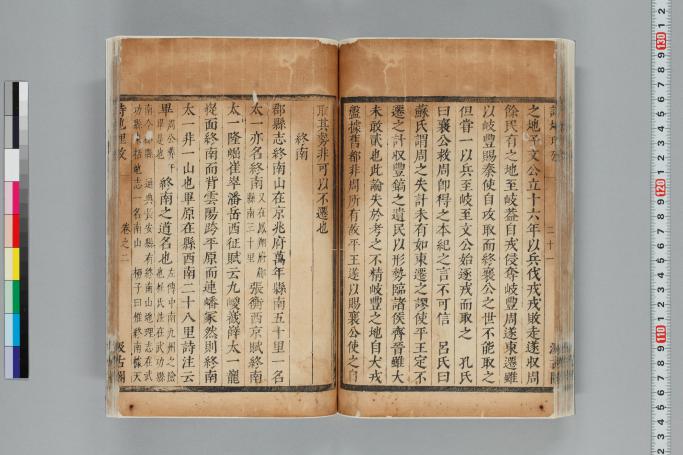 之地子文公立十六年以兵伐戎戎敗走遂收周
餘民有之地至岐蓋自戎侵奪岐豐周遂東遷雖
以岐豐賜秦使自攻取而終襄公之世不能取之
但嘗一以兵至岐至文公始逐戎而取之 孔氏
曰襄公救周即得之本紀之言不可信 呂氏曰
蘇氏謂周之失計未有如東遷之謬使平王定不
遷之計收豐鎬之遺民以形勢臨諸侯齊晉雖大
未敢貳也此論失於考之不精岐豐之地自犬戎
盤據舊都非周所有故平王遂以賜襄公使之自
取其勢非可以不遷也
終南
郡縣志終南山在京兆府萬年縣南五十里一名
太一亦名終南 又在鳳翔府郿縣南三十里 張衡西京賦終南
太一隆崛崔崒潘岳西征賦云九嵕嶻嶭太一巃
嵸面終南而背雲陽跨平原而連嶓冢然則終南
太一非一山也畢原在縣西南二十八里詩注云
畢 終南之道名也 左傳中南九州之險也杜氏注在武功縣
南 通典長安縣有終南山地理志在武
功縣 志一名南山 柳子曰惟終南據天
詩地理攷
卷之二
汲古閣
二十一